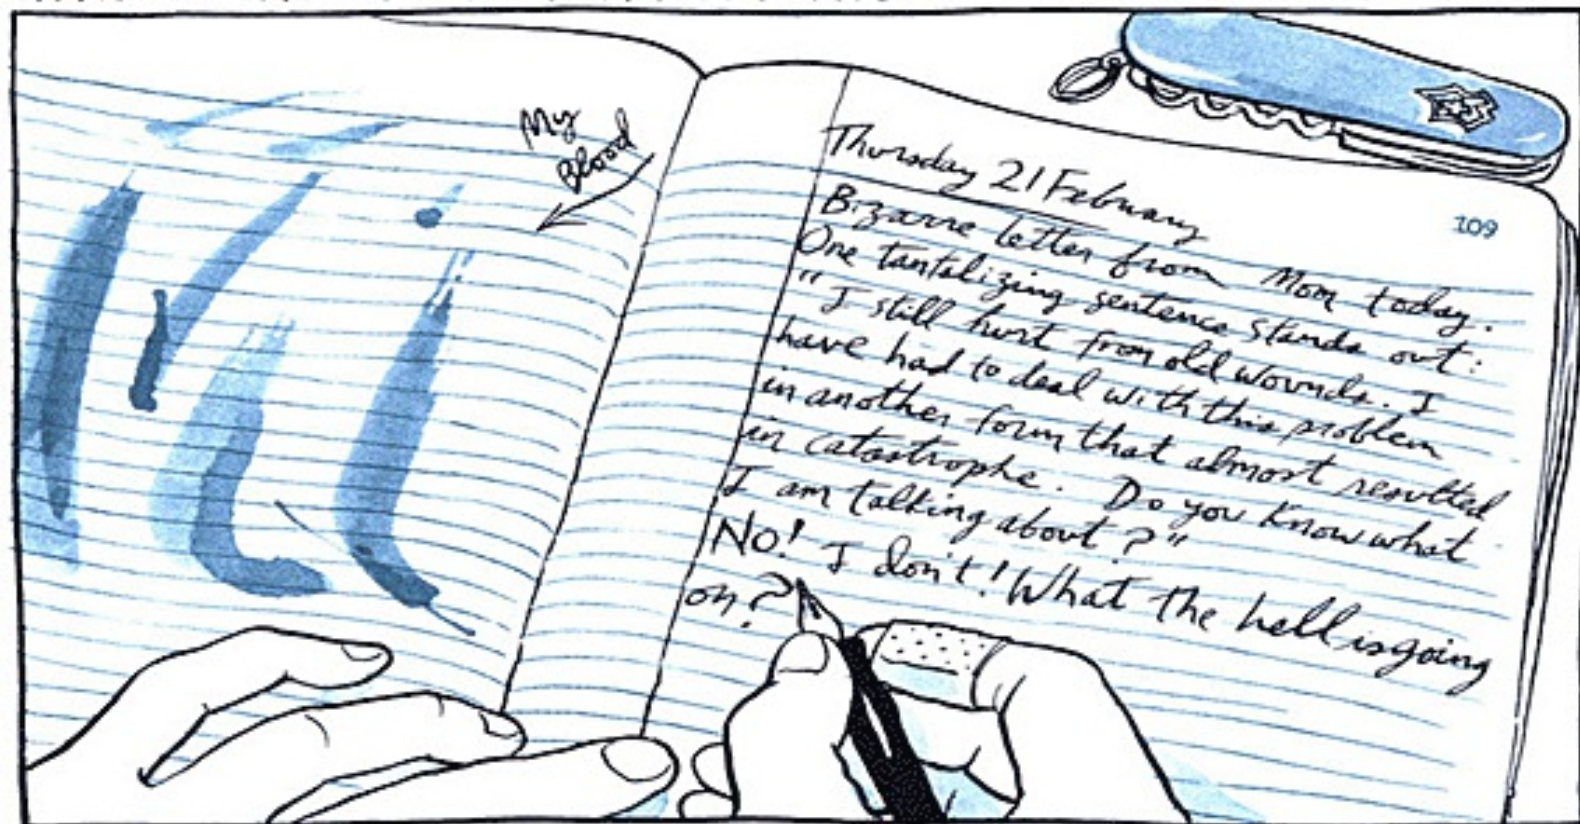 My
Blood
Thursday 21 February
109
Bizarre letter from Mom today.
One tantalizing sentence stands out:
"I still hurt from old wounds. I
have had to deal with this problem
in another form that almost resulted
in catastrophe. Do you know what
I am talking about?"
No! I don't! What the hell is going
on?